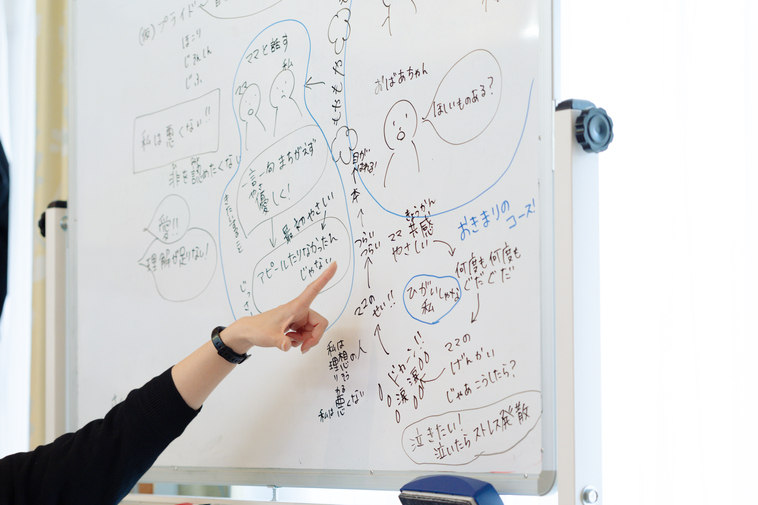 (仮) プライド
ほこり
じそんしん
じふ
私は悪くない!!
非を認めたくない
愛!!
理解が足りない!
ママと話す
ママ
私
一言一句 まちがえず
優しく!
最初やさしい
アピールたりなかったん
じゃない
もやもや
おばあちゃん
ほしいものある?
本
つらい
つらい
ママの
せい!!
きょうかん
ママ 共感
やさしい
おきまりの
コース!
何度も何度も
ぐだぐだ
ひがいしゃな
私
ママの
げんかい
じゃあこうしたら?
ドカン!!
涙
私は
理想の人
私は悪くない
泣きたい!
泣いたら ストレス発散